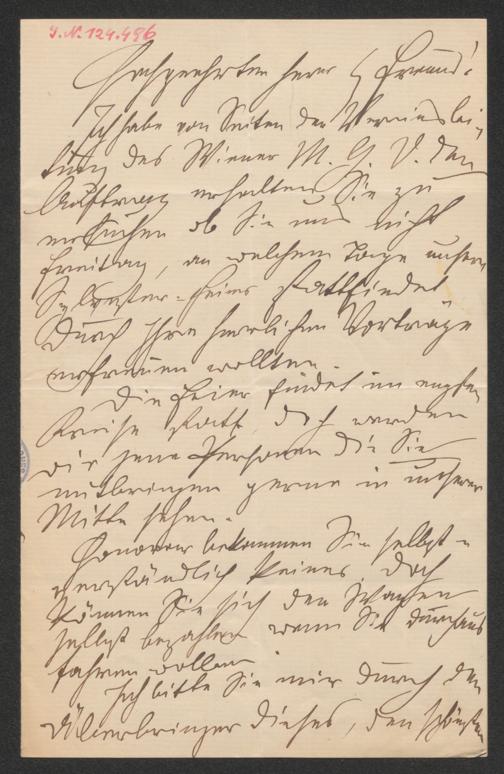 J. N. 124.496
Hochgeehrter Herr u. Freund!
Ich habe von Seiten der Vereinslei-
tung des Wiener M. G. V. den
Auftrag erhalten Sie zu
ersuchen ob Sie uns nicht
Freitag, an welchem Tage unsere
Sylvester-Feier stattfindet
durch Ihre herrlichen Vorträge
erfreuen wollten.
Die Feier findet im engsten
Kreise statt, doch werden
wir jene Personen die Sie
mitbringen gerne in unserer
Mitte sehen.
Honorar bekommen Sie selbst-
verständlich keines doch
können Sie sich den Wagen
selbst bezahlen wenn Sie durchaus
fahren wollen.
Ich bitte Sie mir durch den
Überbringer dieses, den